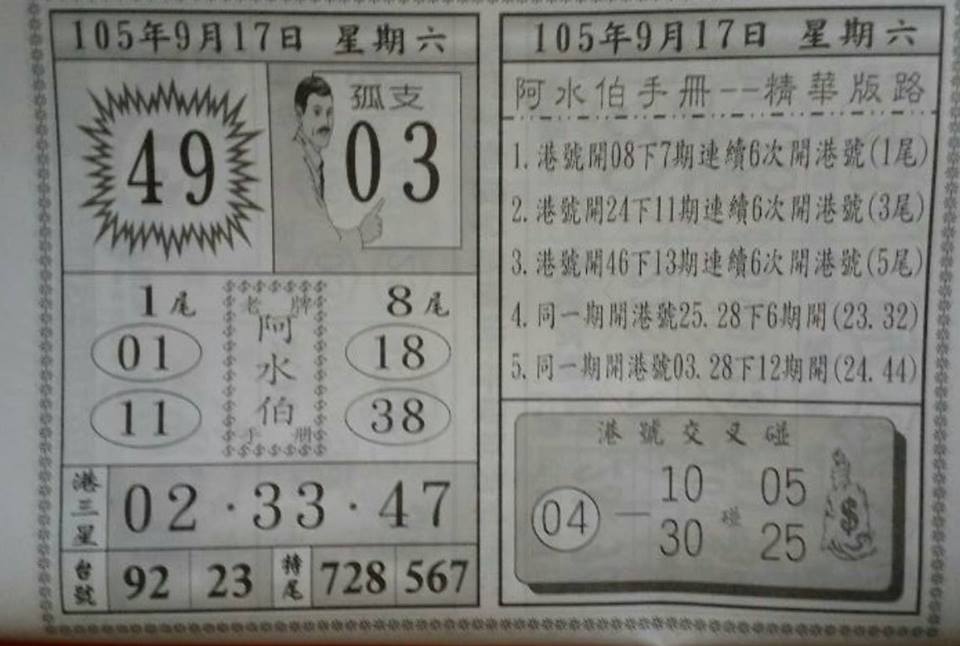 105年9月17日 星期六
49
孤支
03
1尾
01
11
老牌
阿水伯
手册
8尾
18
38
港三星
02·33·47
台號
92
23
特尾
728
567
105年9月17日 星期六
阿水伯手册--精華版路
1. 港號開08下7期連續6次開港號(1尾)
2. 港號開24下11期連續6次開港號(3尾)
3. 港號開46下13期連續6次開港號(5尾)
4. 同一期開港號25.28下6期開(23.32)
5. 同一期開港號03.28下12期開(24.44)
港號交叉碰
04 — 10 30 碰 05 25
$